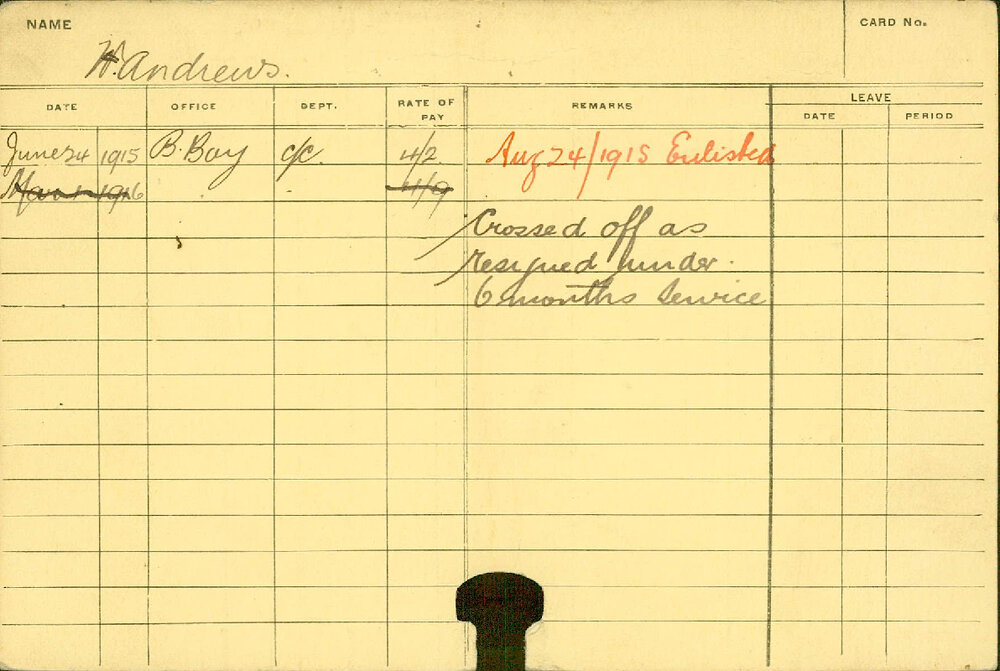 NAME
CARD No.
H. Andrews.
DATE OFFICE DEPT. RATE OF PAY REMARKS LEAVE
DATE PERIOD
June 24 1915 B. Bay c/c. 4/2 Aug 24/1915 Enlisted
Mar 1 1916 4/9
Crossed off as
resigned under
6 months service